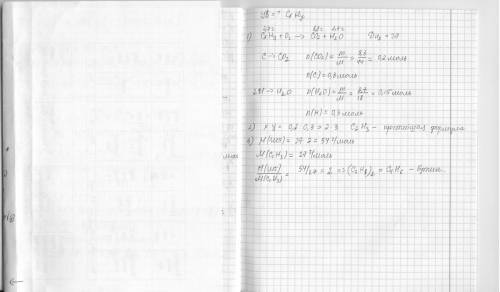 УВ = ? CxHy
2,7г 8,8г 2,7г
1) CxHy + O2 → CO2 + H2O D H2 = 27
C → CO2 n(CO2) = m/M = 8,8/44 = 0,2 моль
n(C) = 0,2 моль
2H → H2O n(H2O) = m/M = 2,7/18 = 0,15 моль
n(H) = 0,3 моль
2) x : y = 0,2 : 0,3 = 2 : 3 C2H3 - простейшая формула
3) M(ист) = 27 · 2 = 54 г/моль
M(C2H3) = 27 г/моль
M(ист)/M(C2H3) = 54/27 = 2 => (C2H3)2 = C4H6 -